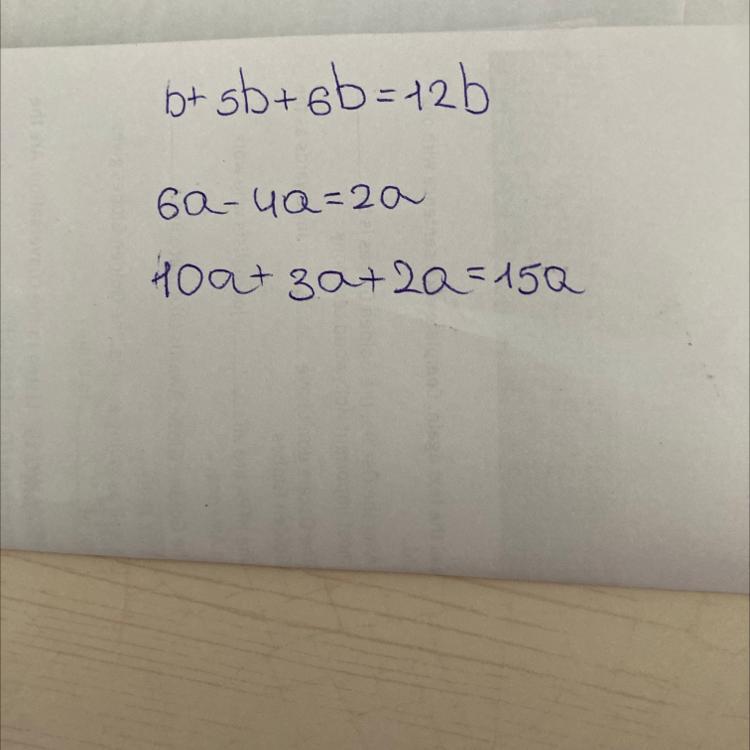 b+ 5b+6b=12b
6a-4a=2a
10a+ 3a+2a=15a